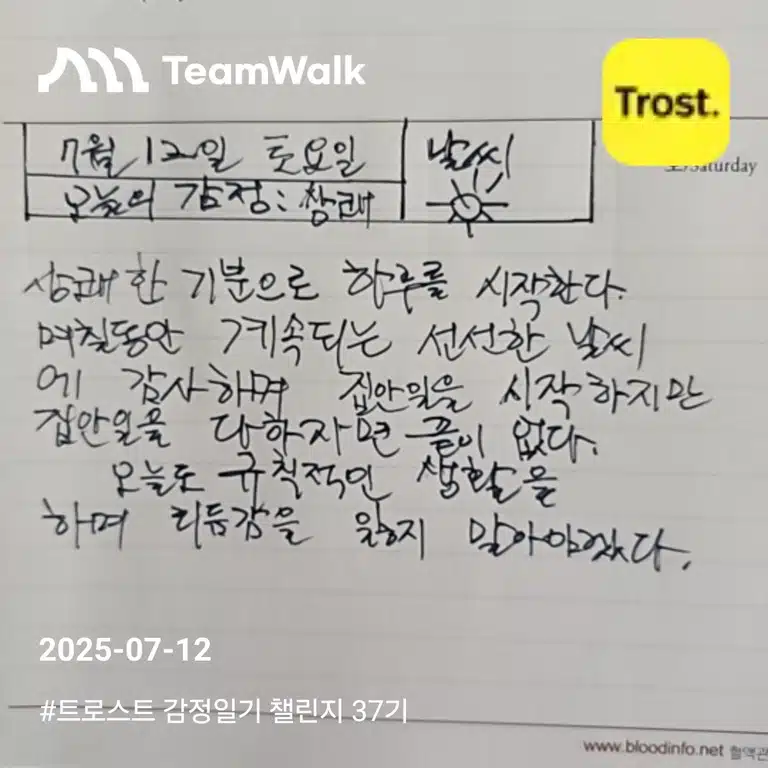 TeamWalk
Trost.
7월 12일 토요일
날씨
Saturday
오늘의 감정: 상쾌
상쾌한 기분으로 하루를 시작한다.
며칠동안 계속되는 선선한 날씨
에 감사하며 집안일을 시작하지만
집안일을 다하자면 끝이 없다.
오늘도 규칙적인 생활을
하며 리듬감을 잃지 말아야겠다.
2025-07-12
#트로스트 감정일기 챌린지 37기
www.bloodinfo.net 혈액관